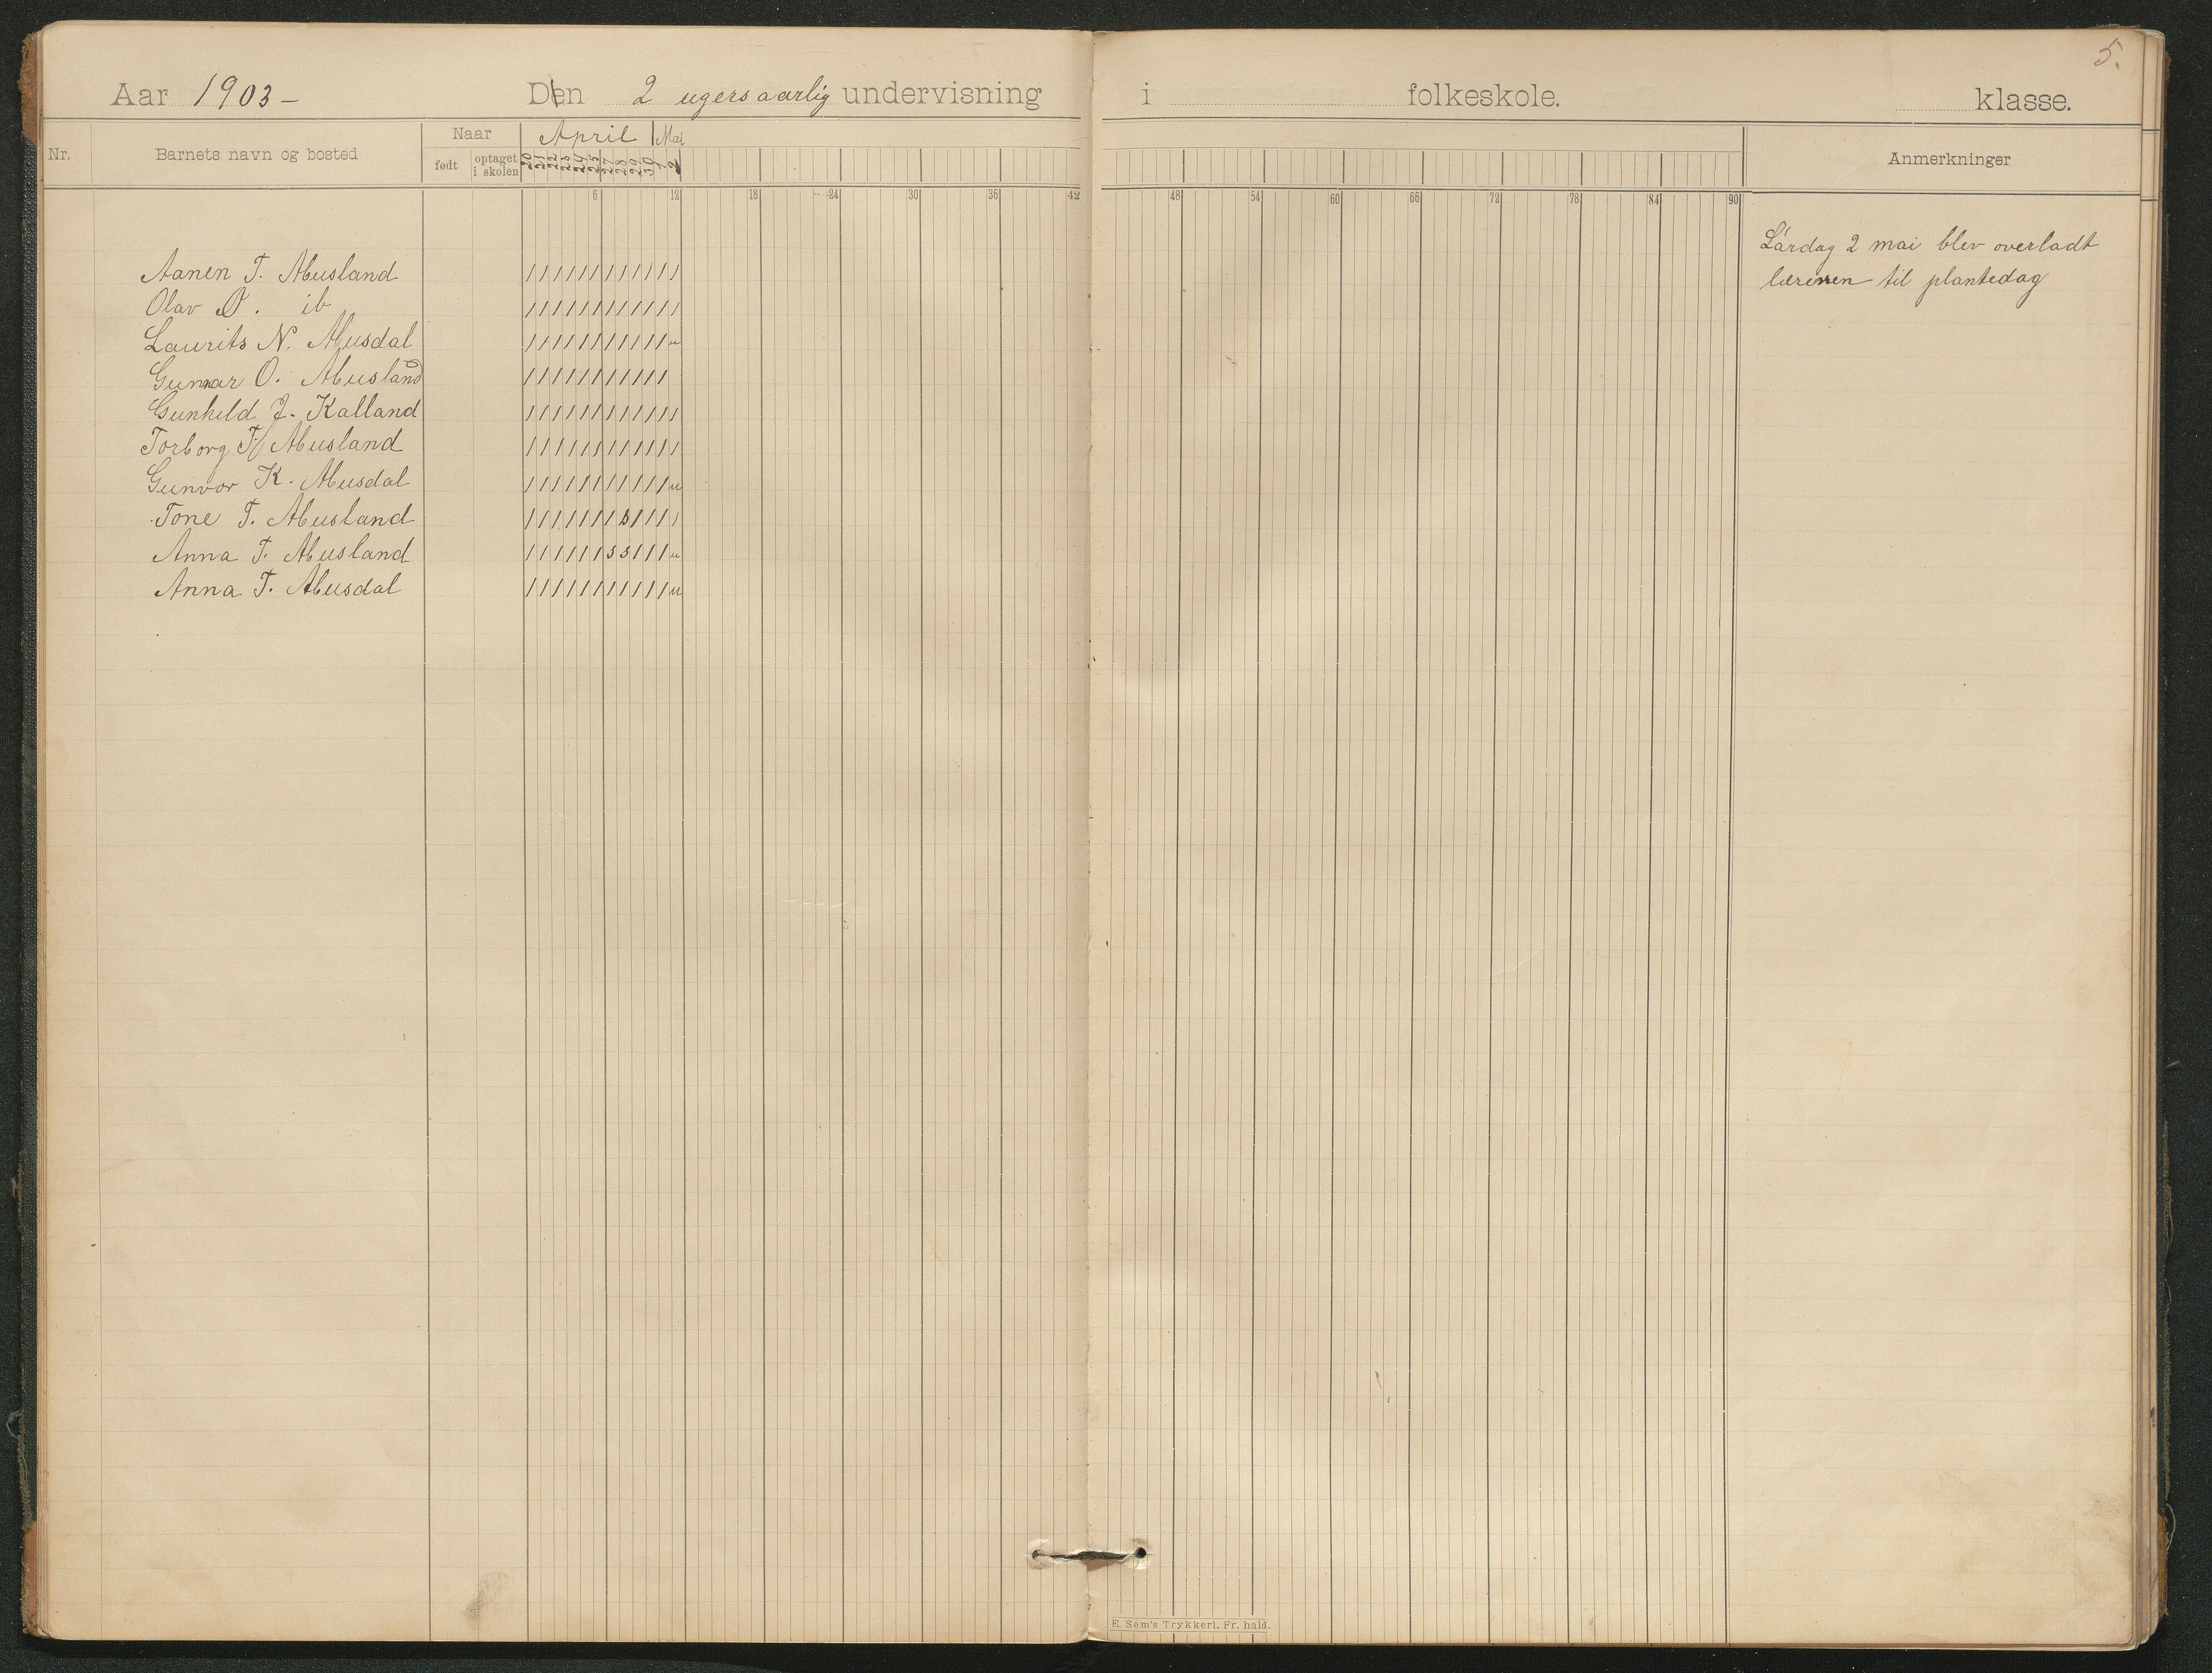 5.
Aar 1903- Den 2 ugers aarlig undervisning i folkeskole. klasse.
Nr. Barnets navn og bosted Naar født optaget i skolen April Mai Anmerkninger
20 21 22 23 24 25 27 28 29 30 1 2
6 12 18 24 30 36 42 48 54 60 66 72 78 84 90
Lørdag 2 mai blev overladt
læreren til plantedag
Aanen T. Abusland / / / / / / / / / / / /
Olav O. ib / / / / / / / / / / / /
Laurits N. Abusdal / / / / / / / / / / / u
Gunnar O. Abusland / / / / / / / / / / /
Gunhild J. Kalland / / / / / / / / / / / /
Torborg T. Abusland / / / / / / / / / / / /
Gunvor K. Abusdal / / / / / / / / / / / u
Tone T. Abusland / / / / / / / s / / / /
Anna T. Abusland / / / / / / s s / / / u
Anna T. Abusdal / / / / / / / / / / / u
E. Sem's Trykkeri, Fr. hald.